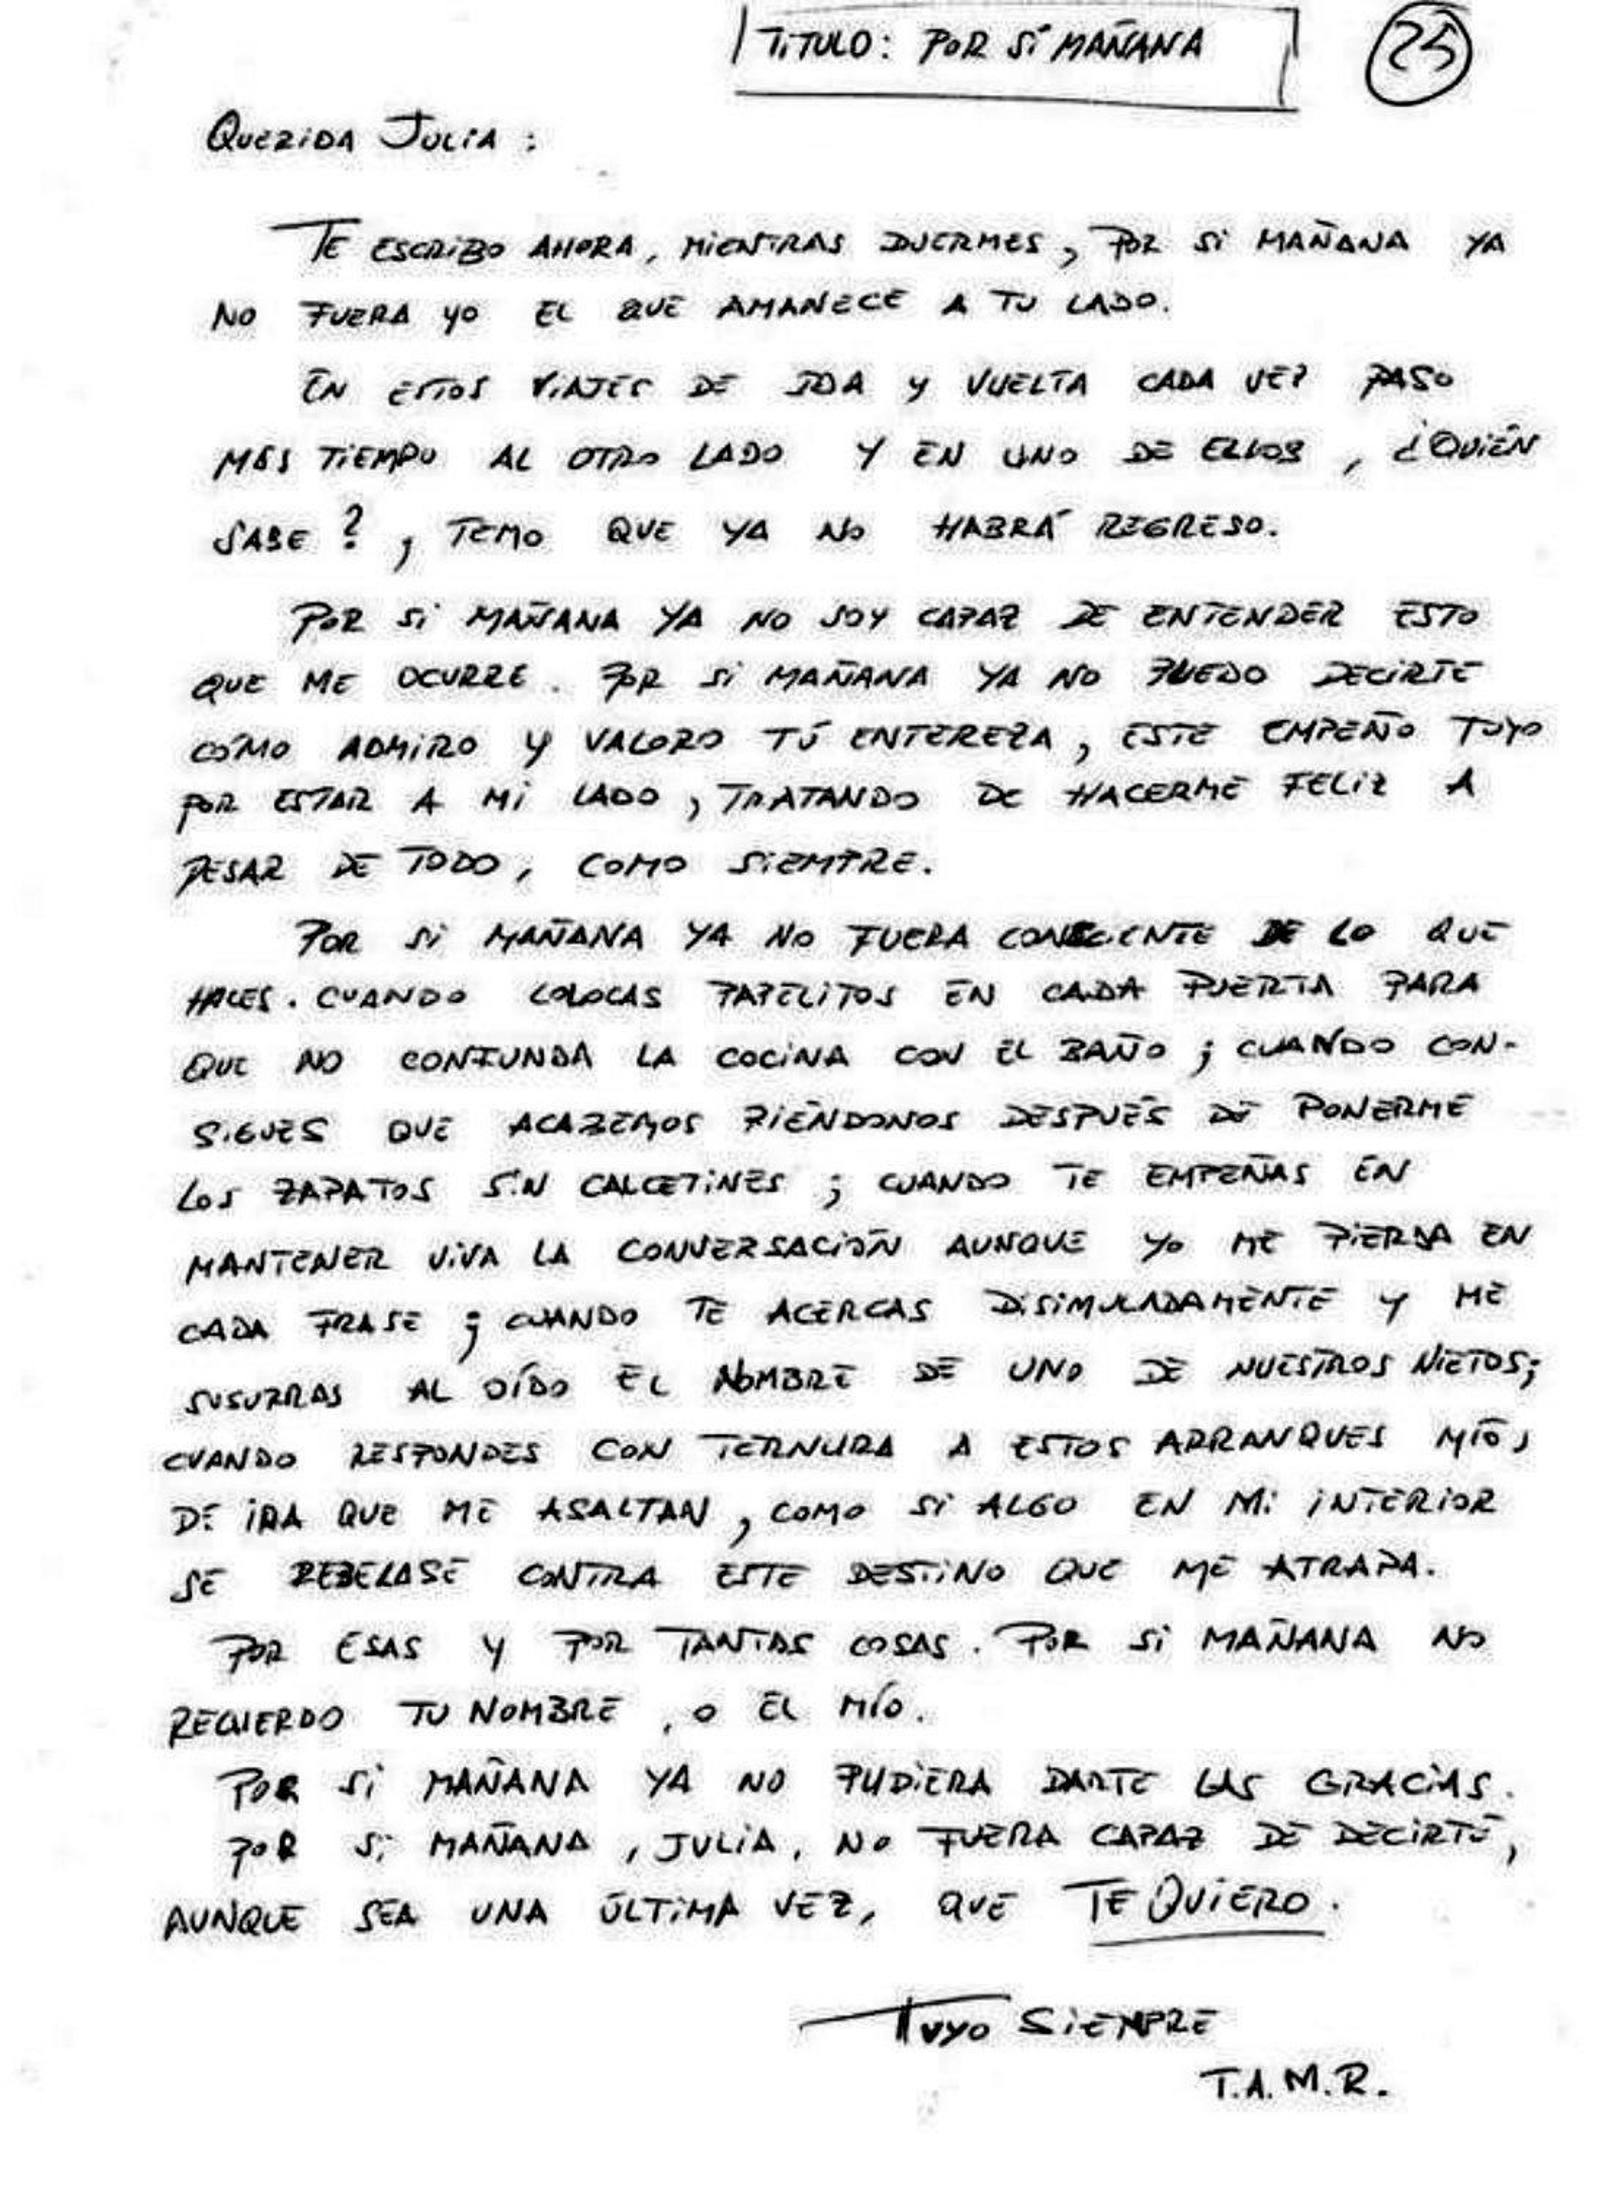 TITULO: POR SI MAÑANA
25
QUERIDA JULIA :
TE ESCRIBO AHORA, MIENTRAS DUERMES, POR SI MAÑANA YA
NO FUERA YO EL QUE AMANECE A TU LADO.
EN ESTOS VIAJES DE IDA Y VUELTA CADA VEZ PASO
MÁS TIEMPO AL OTRO LADO Y EN UNO DE ELLOS, ¿QUIÉN
SABE?, TEMO QUE YA NO HABRÁ REGRESO.
POR SI MAÑANA YA NO SOY CAPAZ DE ENTENDER ESTO
QUE ME OCURRE. POR SI MAÑANA YA NO PUEDO DECIRTE
CÓMO ADMIRO Y VALORO TÚ ENTEREZA, ESTE EMPEÑO TUYO
POR ESTAR A MI LADO, TRATANDO DE HACERME FELIZ A
PESAR DE TODO, COMO SIEMPRE.
POR SI MAÑANA YA NO FUERA CONSCIENTE DE LO QUE
HACES. CUANDO COLOCAS PAPELITOS EN CADA PUERTA PARA
QUE NO CONFUNDA LA COCINA CON EL BAÑO; CUANDO CON-
SIGUES QUE ACABEMOS RIÉNDONOS DESPUÉS DE PONERME
LOS ZAPATOS SIN CALCETINES; CUANDO TE EMPEÑAS EN
MANTENER VIVA LA CONVERSACIÓN AUNQUE YO ME PIERDA EN
CADA FRASE; CUANDO TE ACERCAS DISIMULADAMENTE Y ME
SUSURRAS AL OÍDO EL NOMBRE DE UNO DE NUESTROS NIETOS;
CUANDO RESPONDES CON TERNURA A ESTOS ARRANQUES MÍOS
DE IRA QUE ME ASALTAN, COMO SI ALGO EN MI INTERIOR
SE REBELASE CONTRA ESTE DESTINO QUE ME ATRAPA.
POR ESAS Y POR TANTAS COSAS. POR SI MAÑANA NO
RECUERDO TU NOMBRE, O EL MÍO.
POR SI MAÑANA YA NO PUDIERA DARTE LAS GRACIAS.
POR SI MAÑANA, JULIA, NO FUERA CAPAZ DE DECIRTE,
AUNQUE SEA UNA ÚLTIMA VEZ, QUE TE QUIERO.
TUYO SIEMPRE
T.A.M.R.